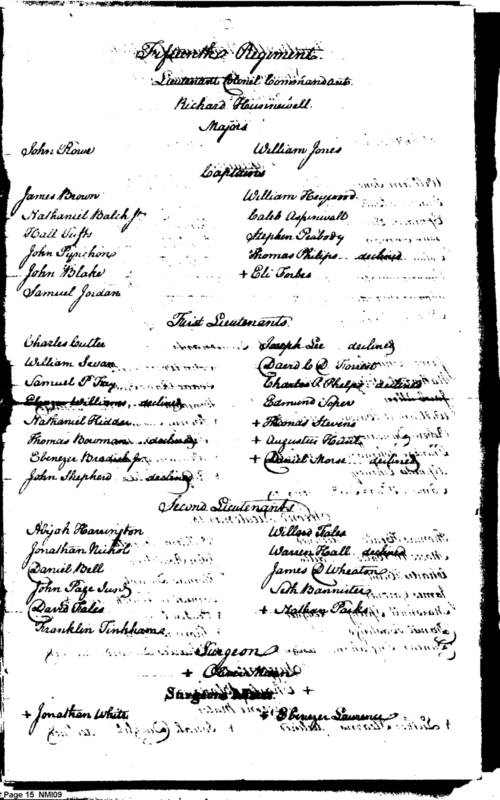 Fifteenth Regiment.
Lieutenant Colonel Commandant.
Richard Hunnewell.
Majors
John Rowe William Jones
Captains
James Brown William Heywood
Nathaniel Balch Jr Caleb Aspinwall
Hall Tufts Stephen Peabody
John Pynchon Thomas Philips declined
John Blake + Eli Forbes
Samuel Jordan
First Lieutenants.
Charles Cutler Joseph Lee declined
William Swan David C D Forrest
Samuel P Fay Charles A Phelps declined
Ebenr Williams, declined Edmund Soper
Nathaniel Kidder + Thomas Stevens
Thomas Bowman declined + Augustus Hunt
Ebenezer Bradish Jr + Daniel Morse declined
John Shepherd declined
Second Lieutenants
Abijah Harrington Willard Fales
Jonathan Nichols Warren Hall declined
Daniel Bell James D Wheaton
John Page Junr Seth Bannister
David Fales + Nathan Parks
Franklin Tinkham
Surgeon
+ Mann
Surgeons Mates +
+ Jonathan White + Ebenezer Lawrence
Page 15 NMI09